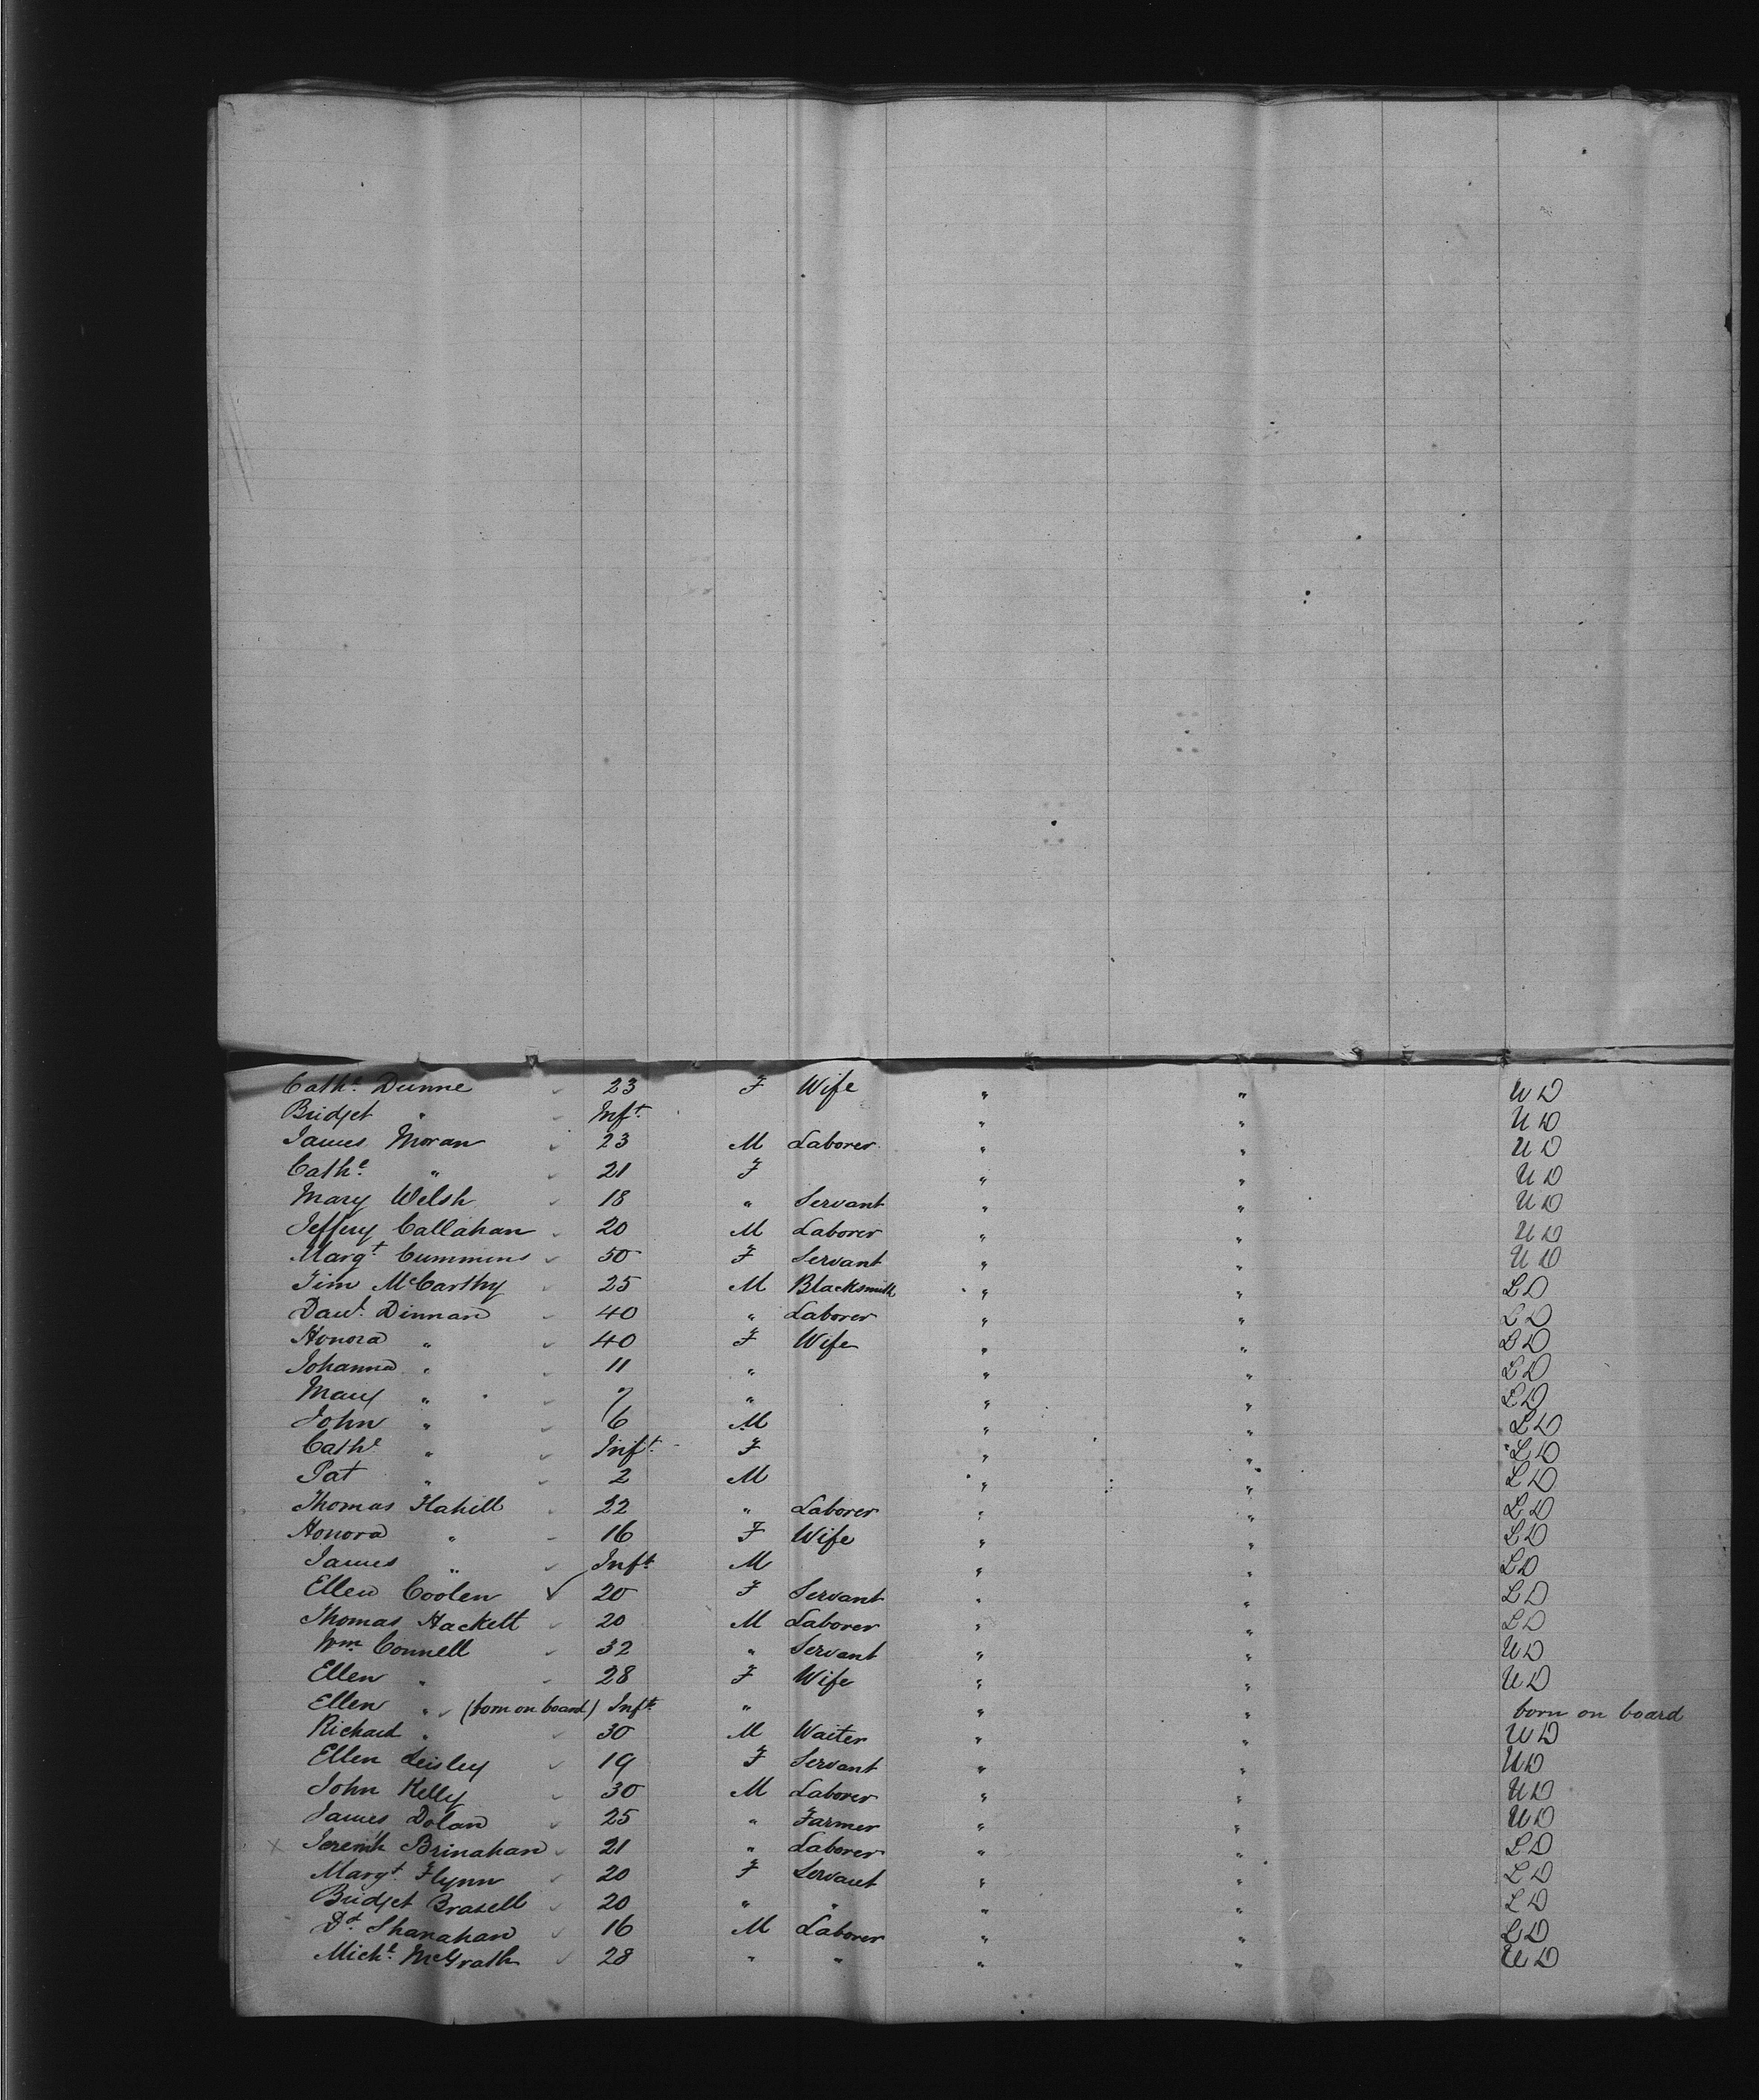 Cathe Dunne 23 F Wife " " UD
Bridget " Inft " " UD
James Moran 23 M Laborer " " UD
Cathe " 21 F " " UD
Mary Welsh 18 " Servant " " UD
Jeffery Callahan 20 M Laborer " " UD
Margt Cummins 50 F Servant " " UD
Tim McCarthy 25 M Blacksmith " " LD
Danl Dinnan 40 " Laborer " " LD
Honora " 40 F Wife " " LD
Johanna " 11 " " " LD
Mary " 7 " " " LD
John " 6 M " " LD
Cathe " Inft F " " LD
Pat " 2 M " " LD
Thomas Hahill 22 " Laborer " " LD
Honora " 16 F Wife " " LD
James " Inft M " " LD
Ellen Coolen 20 F Servant " " LD
Thomas Hackett 20 M Laborer " " LD
Wm Connell 32 " Servant " " UD
Ellen " 28 F Wife " " UD
Ellen " (born on board) Inft " " " born on board
Richard " 30 M Waiter " " UD
Ellen Leisley 19 F Servant " " UD
John Kelly 30 M Laborer " " UD
James Dolan 25 " Farmer " " UD
x Jeremh Brinahan 21 " Laborer " " LD
Margt Flynn 20 F Servant " " LD
Bridget Brasell 20 " " " " LD
Dt Shanahan 16 M Laborer " " LD
Michl McGrath 28 " " " " UD